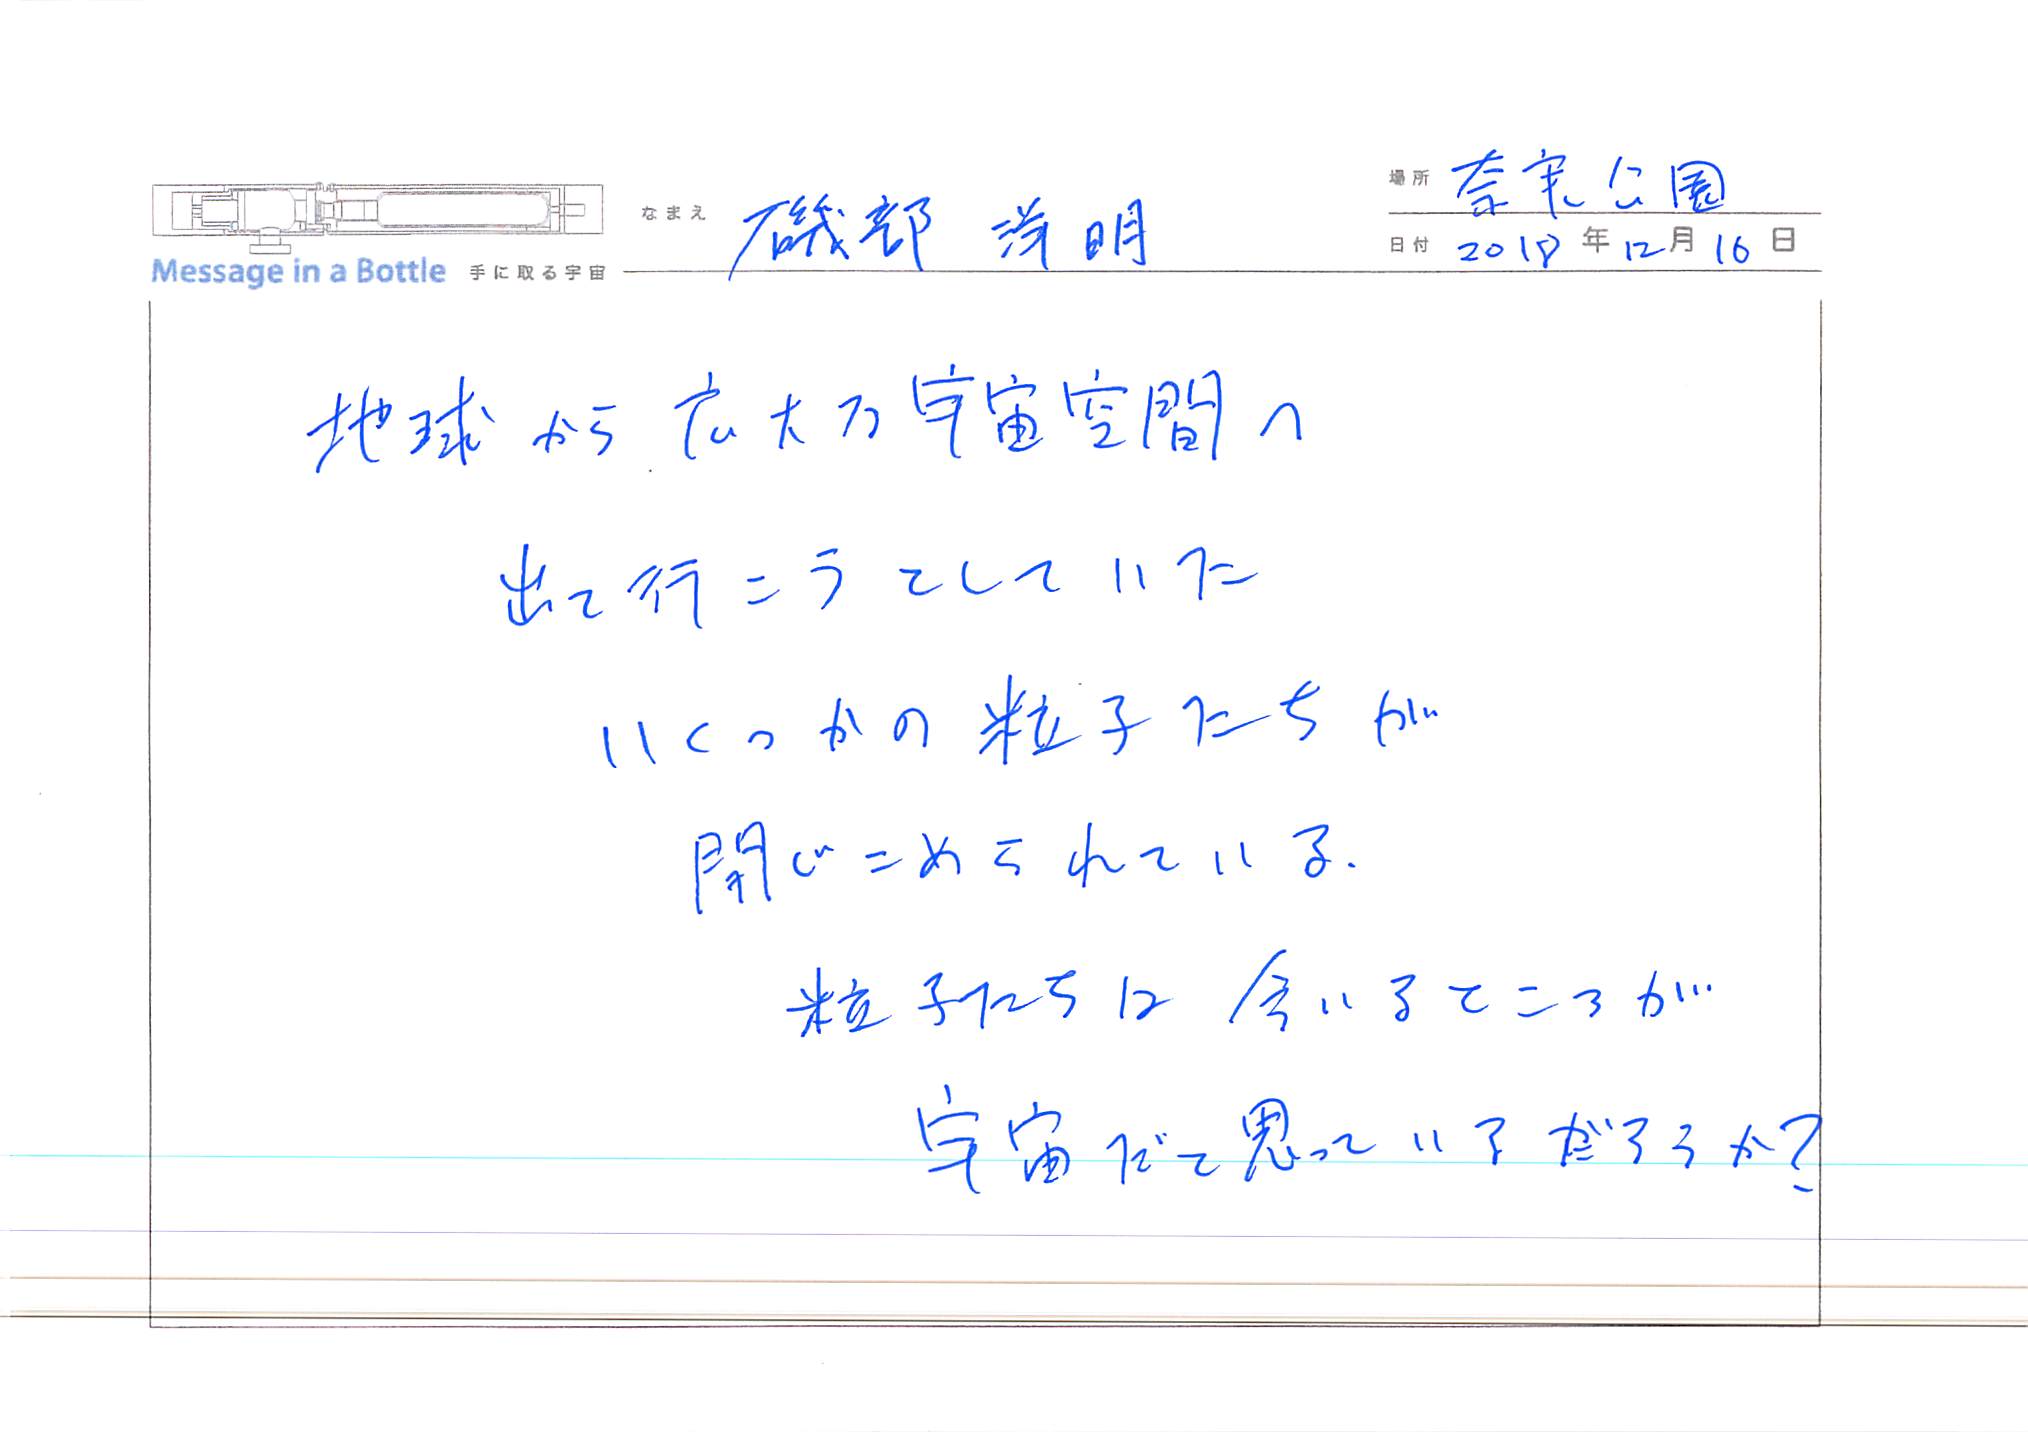 場所 奈良公園
なまえ 磯部 洋明
日付 2018年12月16日
Message in a Bottle 手に取る宇宙
地球から広大な宇宙空間へ
出て行こうとしていた
いくつかの粒子たちが
閉じこめられている.
粒子たちは今いるところが
宇宙だと思っているだろうか?